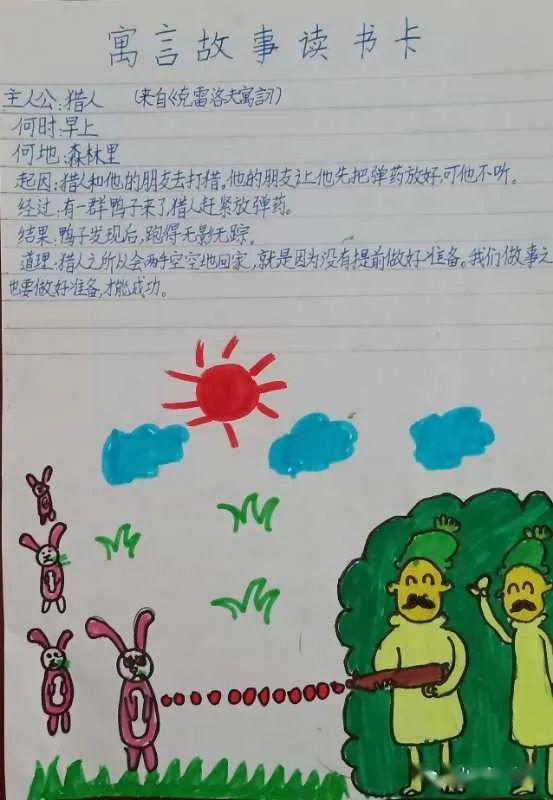 寓言故事读书卡
主人公:猎人 (来自《克雷洛夫寓言》)
何时:早上
何地:森林里
起因:猎人和他的朋友去打猎。他的朋友让他先把弹药放好,可他不听。
经过:有一群鸭子来了,猎人赶紧放弹药。
结果:鸭子发现后,跑得无影无踪。
道理:猎人之所以会两手空空地回家,就是因为没有提前做好准备。我们做事之
也要做好准备,才能成功。